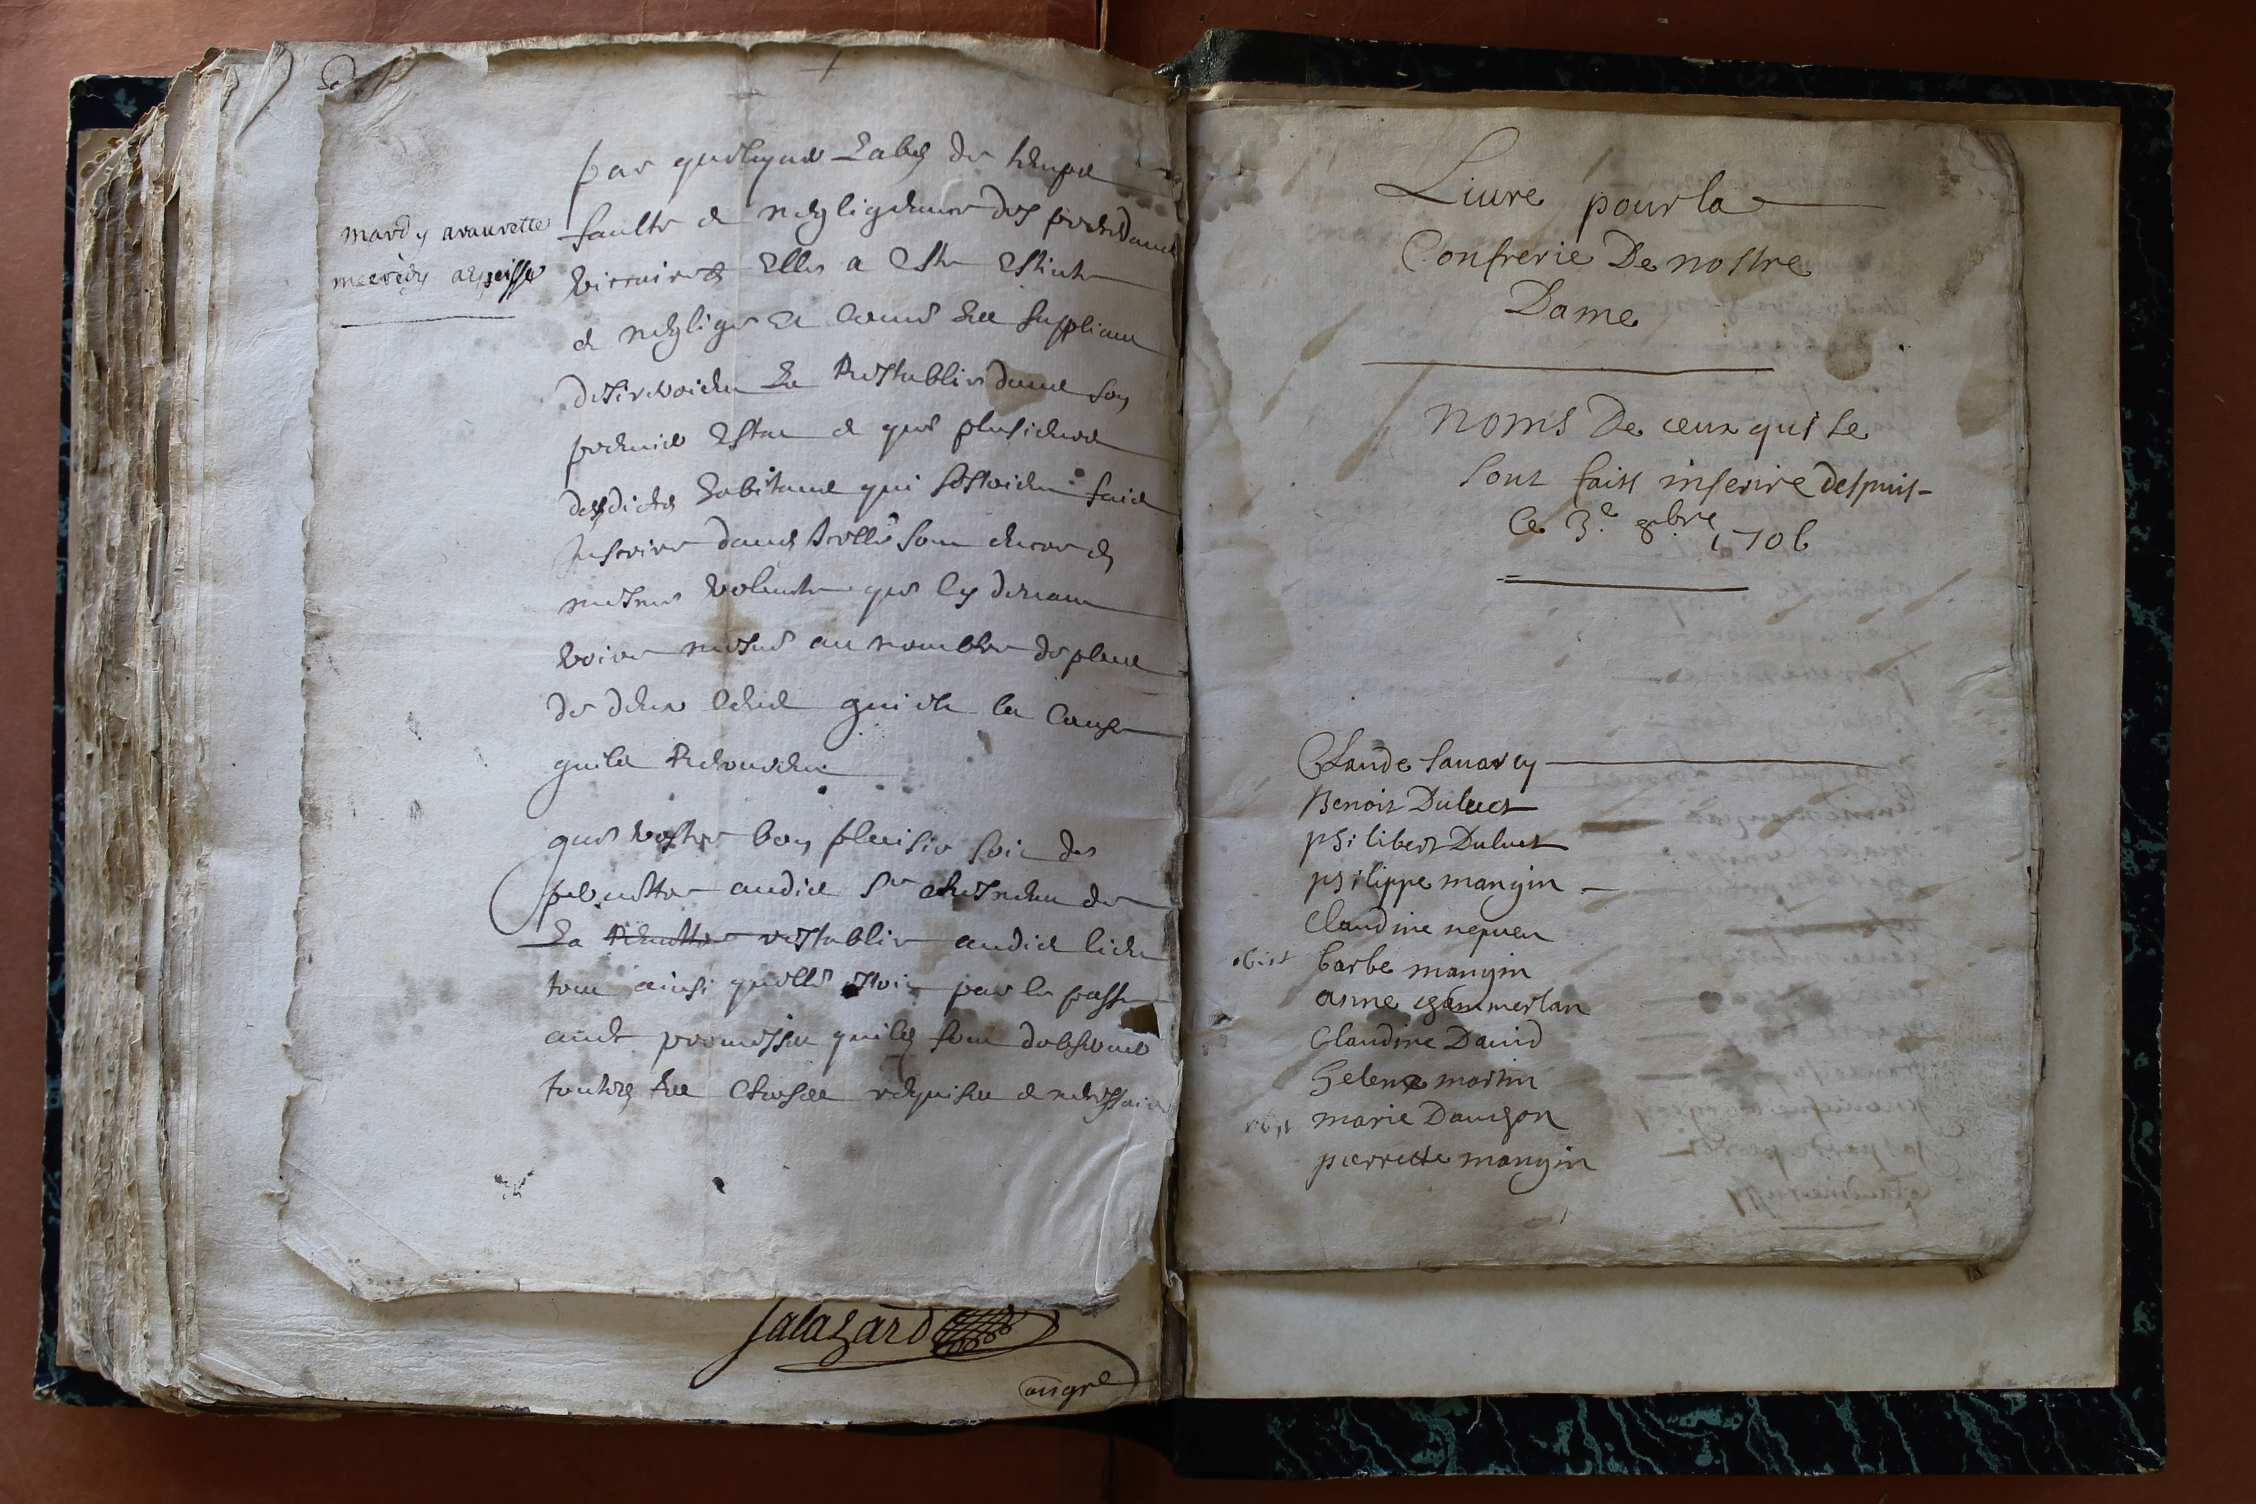 mardy a rauvette
mecredy a
par quelque Labs de temps
faulte et negligence des precedans
viccaires Elle a Esté Estinte
et negligee Et comme Les suppliant
desireroient La Restablir dans son
premier Estat et que plusieurs
desdictz habitans qui sestoient faict
Inscrire dans Icelle sont encor en
mesme volonté que cy devant
voire mesme au nombre de plus
de deux Cens qui est la cause
quilz Recourent
que vostre bon plaisir soit de
permettre audict Sr de
La restablir audict lieu
tout ainsi quelle estoit par le passé
avec promesse quilz font dobserver
toutes Les choses requises et necessaires
salazard
Liure pour la
Confrerie De nostre
Dame
noms De ceux qui se
sont faits inscrire despuis
Ce 3.e 8.bre 1706
Claude sauarey
Benoit Duluct
philibert Duluct
philippe mangin
Claudine nepueu
obiit barbe mangin
anne chammerlan
Claudine Dauid
helene martin
obiit marie Dauchon
pierrette mangin